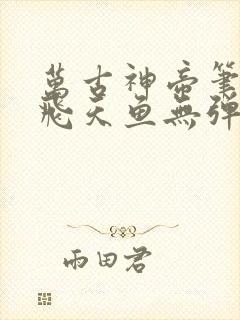 萬古神帝筆
飛天魚無彈
雨田君